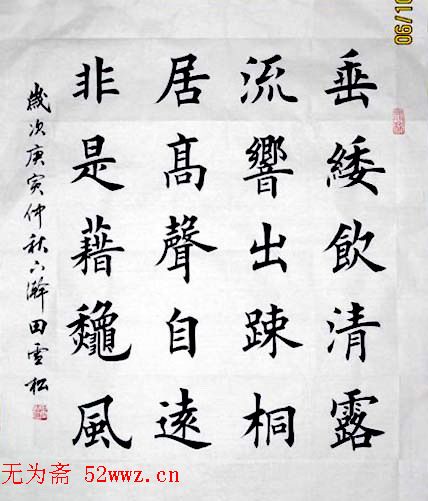 垂緌飲清露
流響出疎桐
居髙聲自遠
非是藉龝風
歲次庚寅仲秋六澣田雪松
无为斋 52wwz.cn
06/10